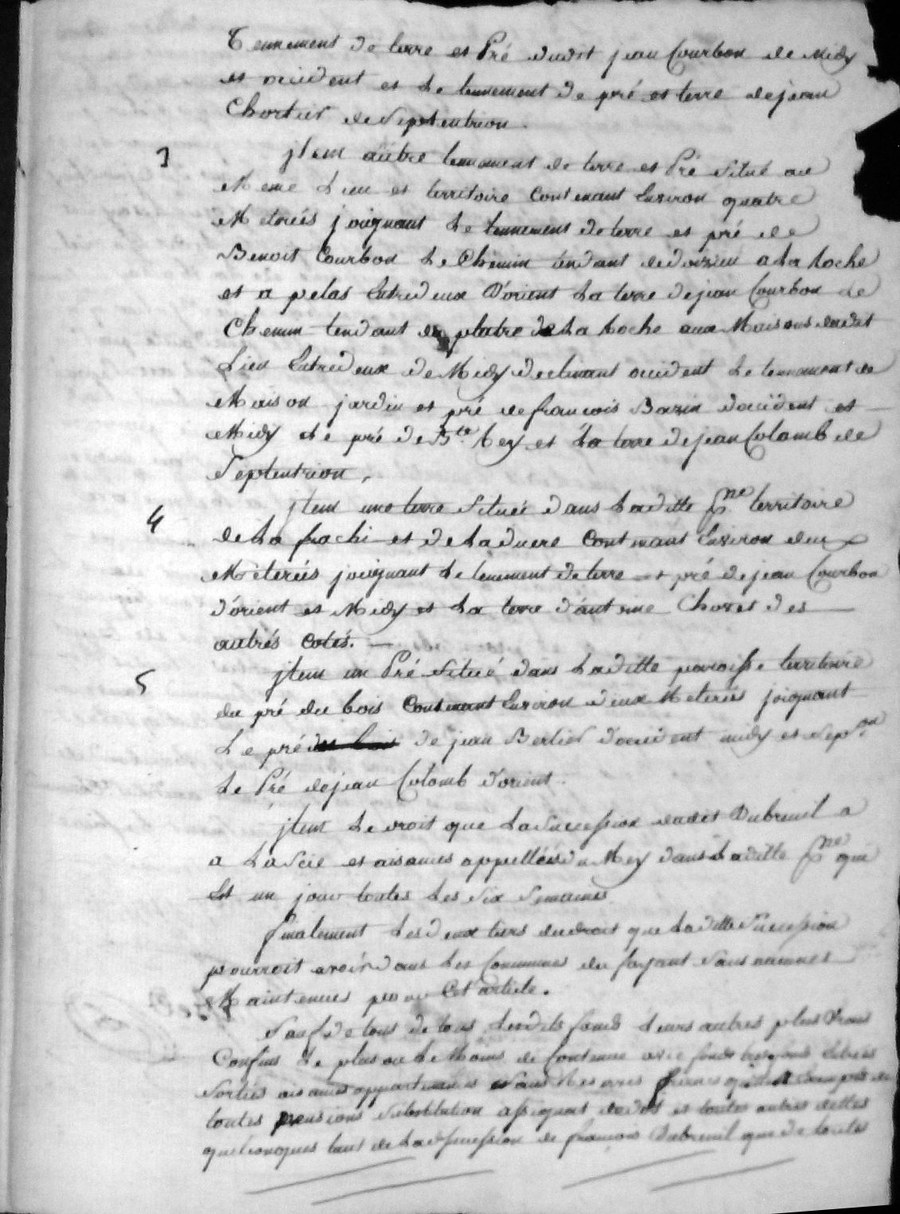 Tennement de terre et Pré dudit jean Courbon de Midy
et occident et Le tennement de pré et terre de jean
Chortier de Septentrion.
3 jtem autre tennement de terre et Pré Situé au
Meme Lieu et territoire Contenant Environ quatre
Meterées joignant Le tennement de terre et pré de
Benoit Courbon Le Chemin tendant de a La Roche
et a pelas Entredeux D'orient La terre de jean Courbon Le
Chemin tendant platre de La Roche aux Maisons dudit
Lieu Entredeux de Midy declinant occident Le tennement de
Maison jardin et pré de francois Bazin d'occident et
Midy Le pré de Bte Rey et La terre de jean Colomb de
Septentrion.
4 jtem une terre Situeé dans Laditte pne territoire
de La et de Contenant Environ deux
Meterées joignant Le tennement de terre et pré de jean Courbon
d'orient et Midy et La terre d'antoine des
autrés Cotés.
5 jtem un Pré Situé dans Laditte paroisse territoire
du pré du bois Contenant Environ deux Meterés joignant
Le pré de jean Berlier d'occident midy et Sepon
Le Pré de jean Colomb d'orient.
jtem Le droit que La Succession dudit Dubreuil a
a La Scie et aisances appelleés du Rey dans Laditte pne qui
Est un jour toutes Les Six Semaines
finalement Les deux tiers du droit que Laditte Succession
pourroit avoir dans Les Communes du fayant Sans
Maintenues pour Cet article.
Sauf de tous Lesdits fonds Leurs autres plus Vrais
Confins Le plus ou Le Moins de Contenue avec fonds
Sorties aisances appartenances
toutes pensions Substitution et toutes autres dettes
quelconques tant de La ditte Succession de francois Dubreuil que de toutes